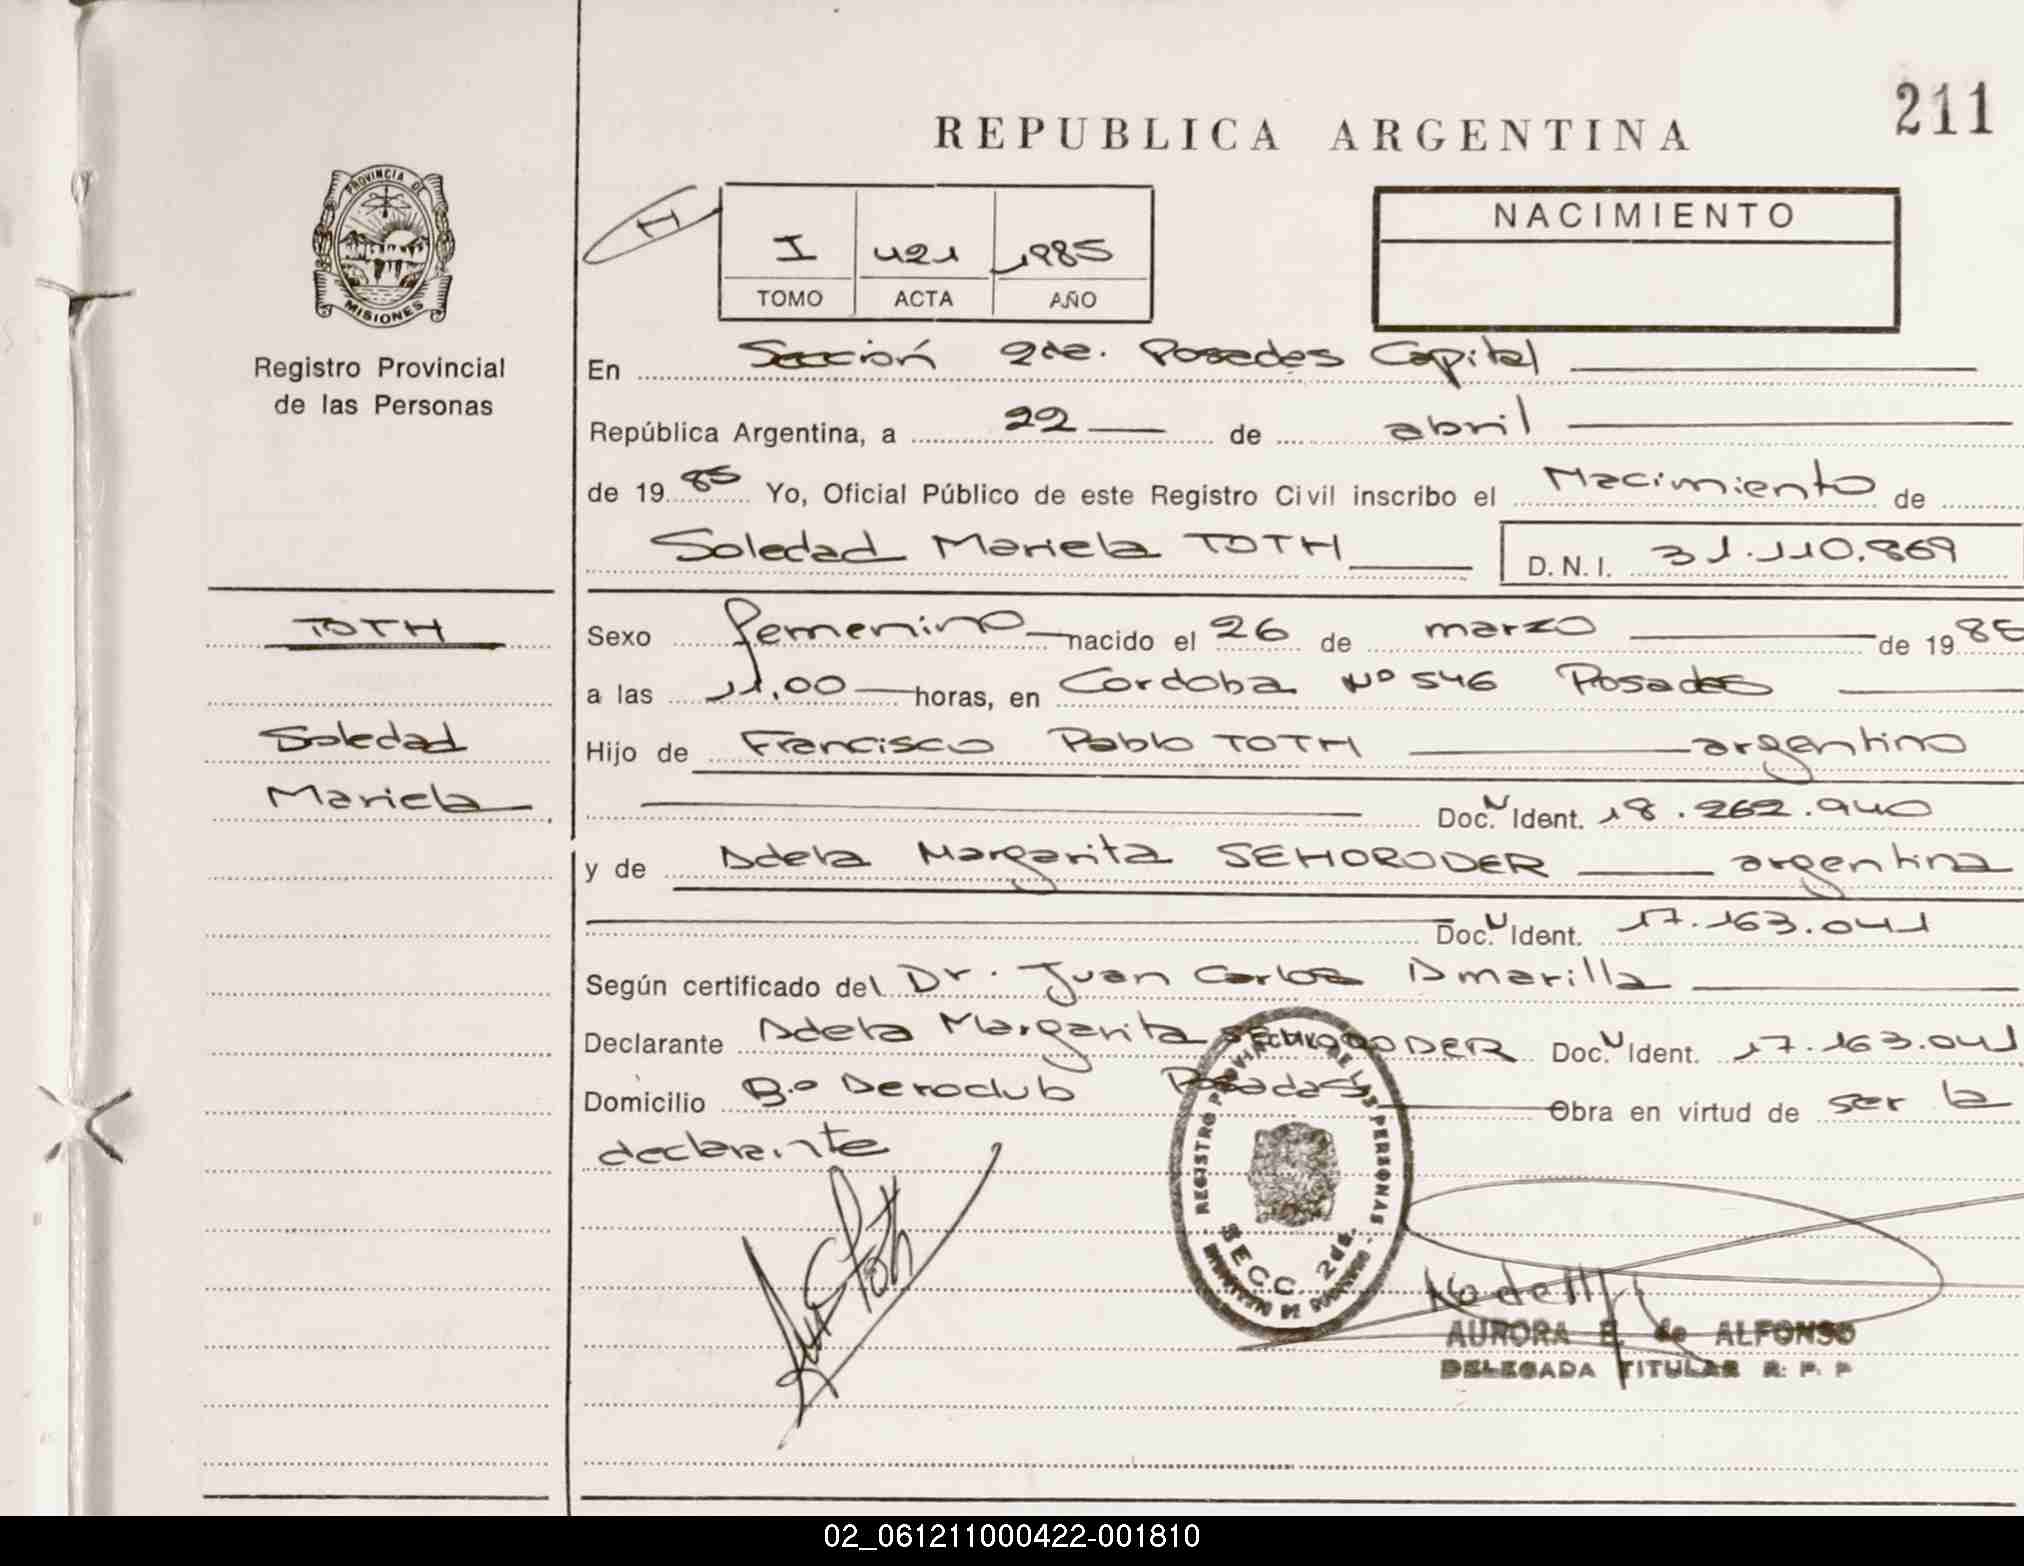 211
REPUBLICA ARGENTINA
PROVINCIA DE
MISIONES
Registro Provincial
de las Personas
H
I 421 1985
TOMO ACTA AÑO
NACIMIENTO
En Sección 2da. Posadas Capital
República Argentina, a 22 de abril
de 1985 Yo, Oficial Público de este Registro Civil inscribo el Nacimiento de
Soledad Mariela TOTH D.N.I. 31.110.869
TOTH
Soledad
Mariela
Sexo femenino nacido el 26 de marzo de 1985
a las 11,00 horas, en Cordoba Nº 546 Posadas
Hijo de Francisco Pablo TOTH argentino
Doc. N Ident. 18.262.940
y de Adela Margarita SEHORODER argentina
Doc. N Ident. 17.163.041
Según certificado del Dr. Juan Carlos Amarilla
Declarante Adela Margarita Doc. N Ident. 17.163.041
Domicilio Bº Aeroclub Posadas Obra en virtud de ser la
declarante
REGISTRO PROVINCIAL DE LAS PERSONAS
SECC 2da.
AURORA E. de ALFONSO
DELEGADA TITULAR R. P. P
02_061211000422-001810